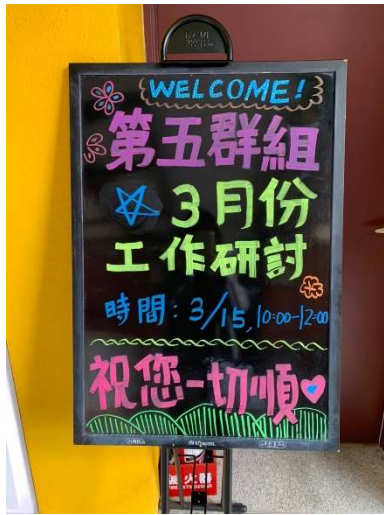 WELCOME!
第五群組
3月份
工作研討
時間：3/15, 10:00-12:00
祝您一切順
滅火器